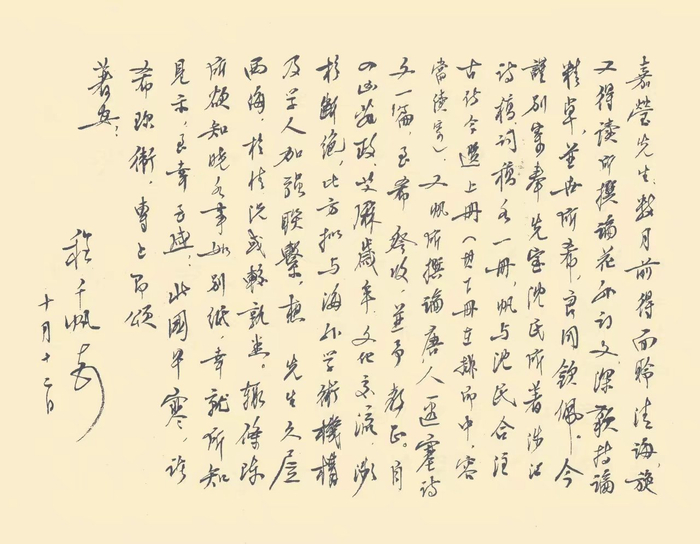 嘉瑩先生：數月前得面聆清誨，旋
又得讀所撰論花外詞文，深歎持論
精卓，並世所希，良用欽佩。今
謹別寄奉先室沈氏所著涉江
詩稿詞稿各一冊，帆與沈氏合注
古詩今選上冊（其下冊在排印中，容
當續寄）。又帆所撰論唐人邊塞詩
文一篇，至希 詧收，並予教正。自
四凶亂政，歷歲年，文化交流瀕
於斷絕，此方擬與海外學術機構
及學人加強聯繫，想 先生久居
西海，於情況或較孰悉。輒條陳
所願知曉各事如別紙，幸就所知
見示，至幸至感！此國早寒，諸
希珍衛，專上即頌
著安！
程千帆
十月十二日